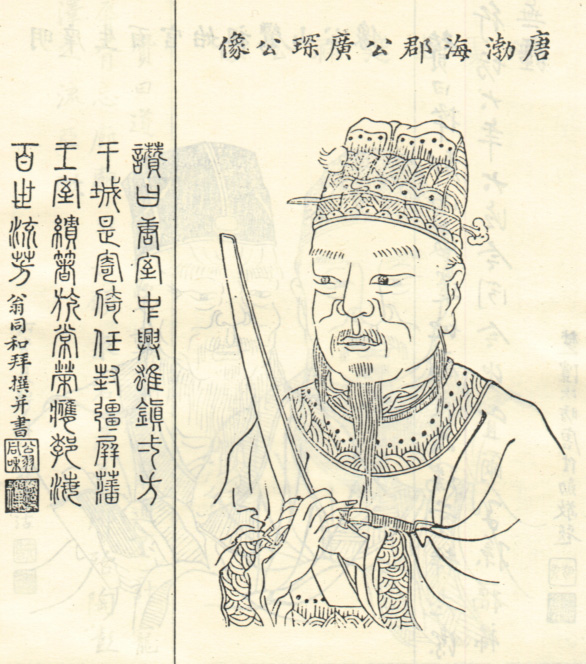 唐渤海郡公廣琛公像
讚曰唐室中興雄鎮方
干城是寄倚任封疆屏藩
王室績著旂常榮膺郣海
百世流芳 翁同和拜撰并書